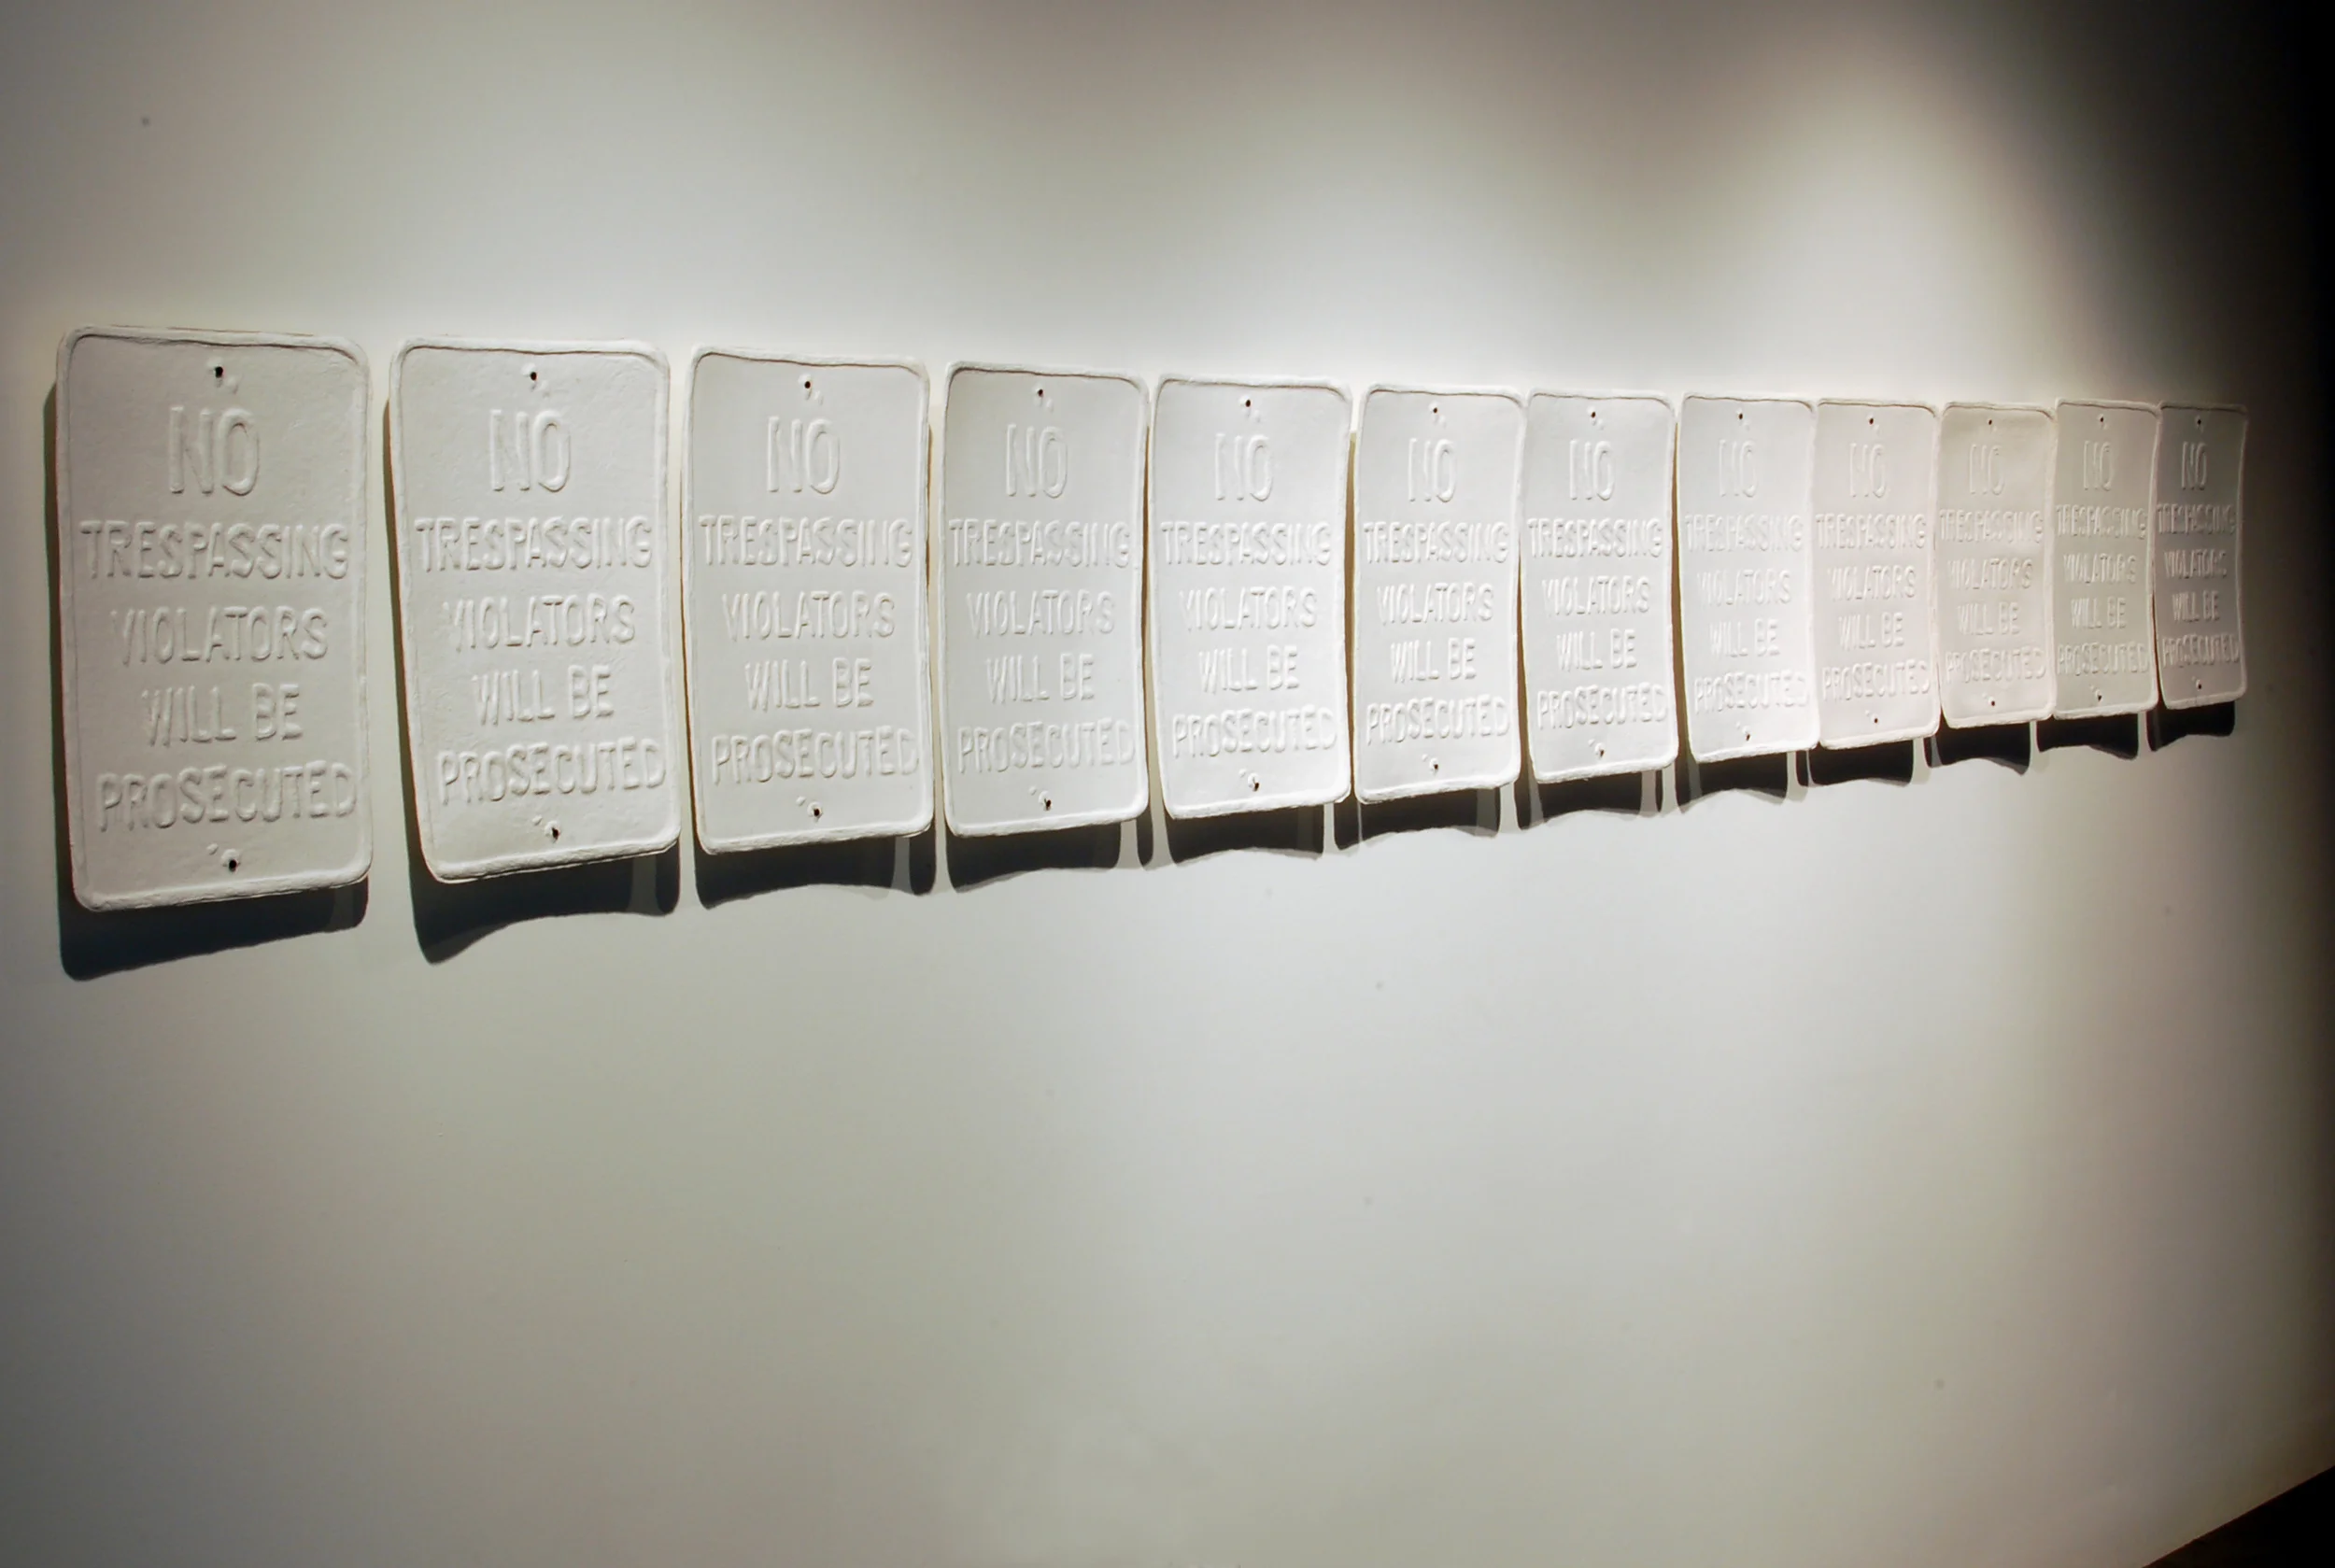 NO
TRESPASSING
VIOLATORS
WILL BE
PROSECUTED
NO
TRESPASSING
VIOLATORS
WILL BE
PROSECUTED
NO
TRESPASSING
VIOLATORS
WILL BE
PROSECUTED
NO
TRESPASSING
VIOLATORS
WILL BE
PROSECUTED
NO
TRESPASSING
VIOLATORS
WILL BE
PROSECUTED
NO
TRESPASSING
VIOLATORS
WILL BE
PROSECUTED
NO
TRESPASSING
VIOLATORS
WILL BE
PROSECUTED
NO
TRESPASSING
VIOLATORS
WILL BE
PROSECUTED
NO
TRESPASSING
VIOLATORS
WILL BE
PROSECUTED
NO
TRESPASSING
VIOLATORS
WILL BE
PROSECUTED
NO
TRESPASSING
VIOLATORS
WILL BE
PROSECUTED
NO
TRESPASSING
VIOLATORS
WILL BE
PROSECUTED